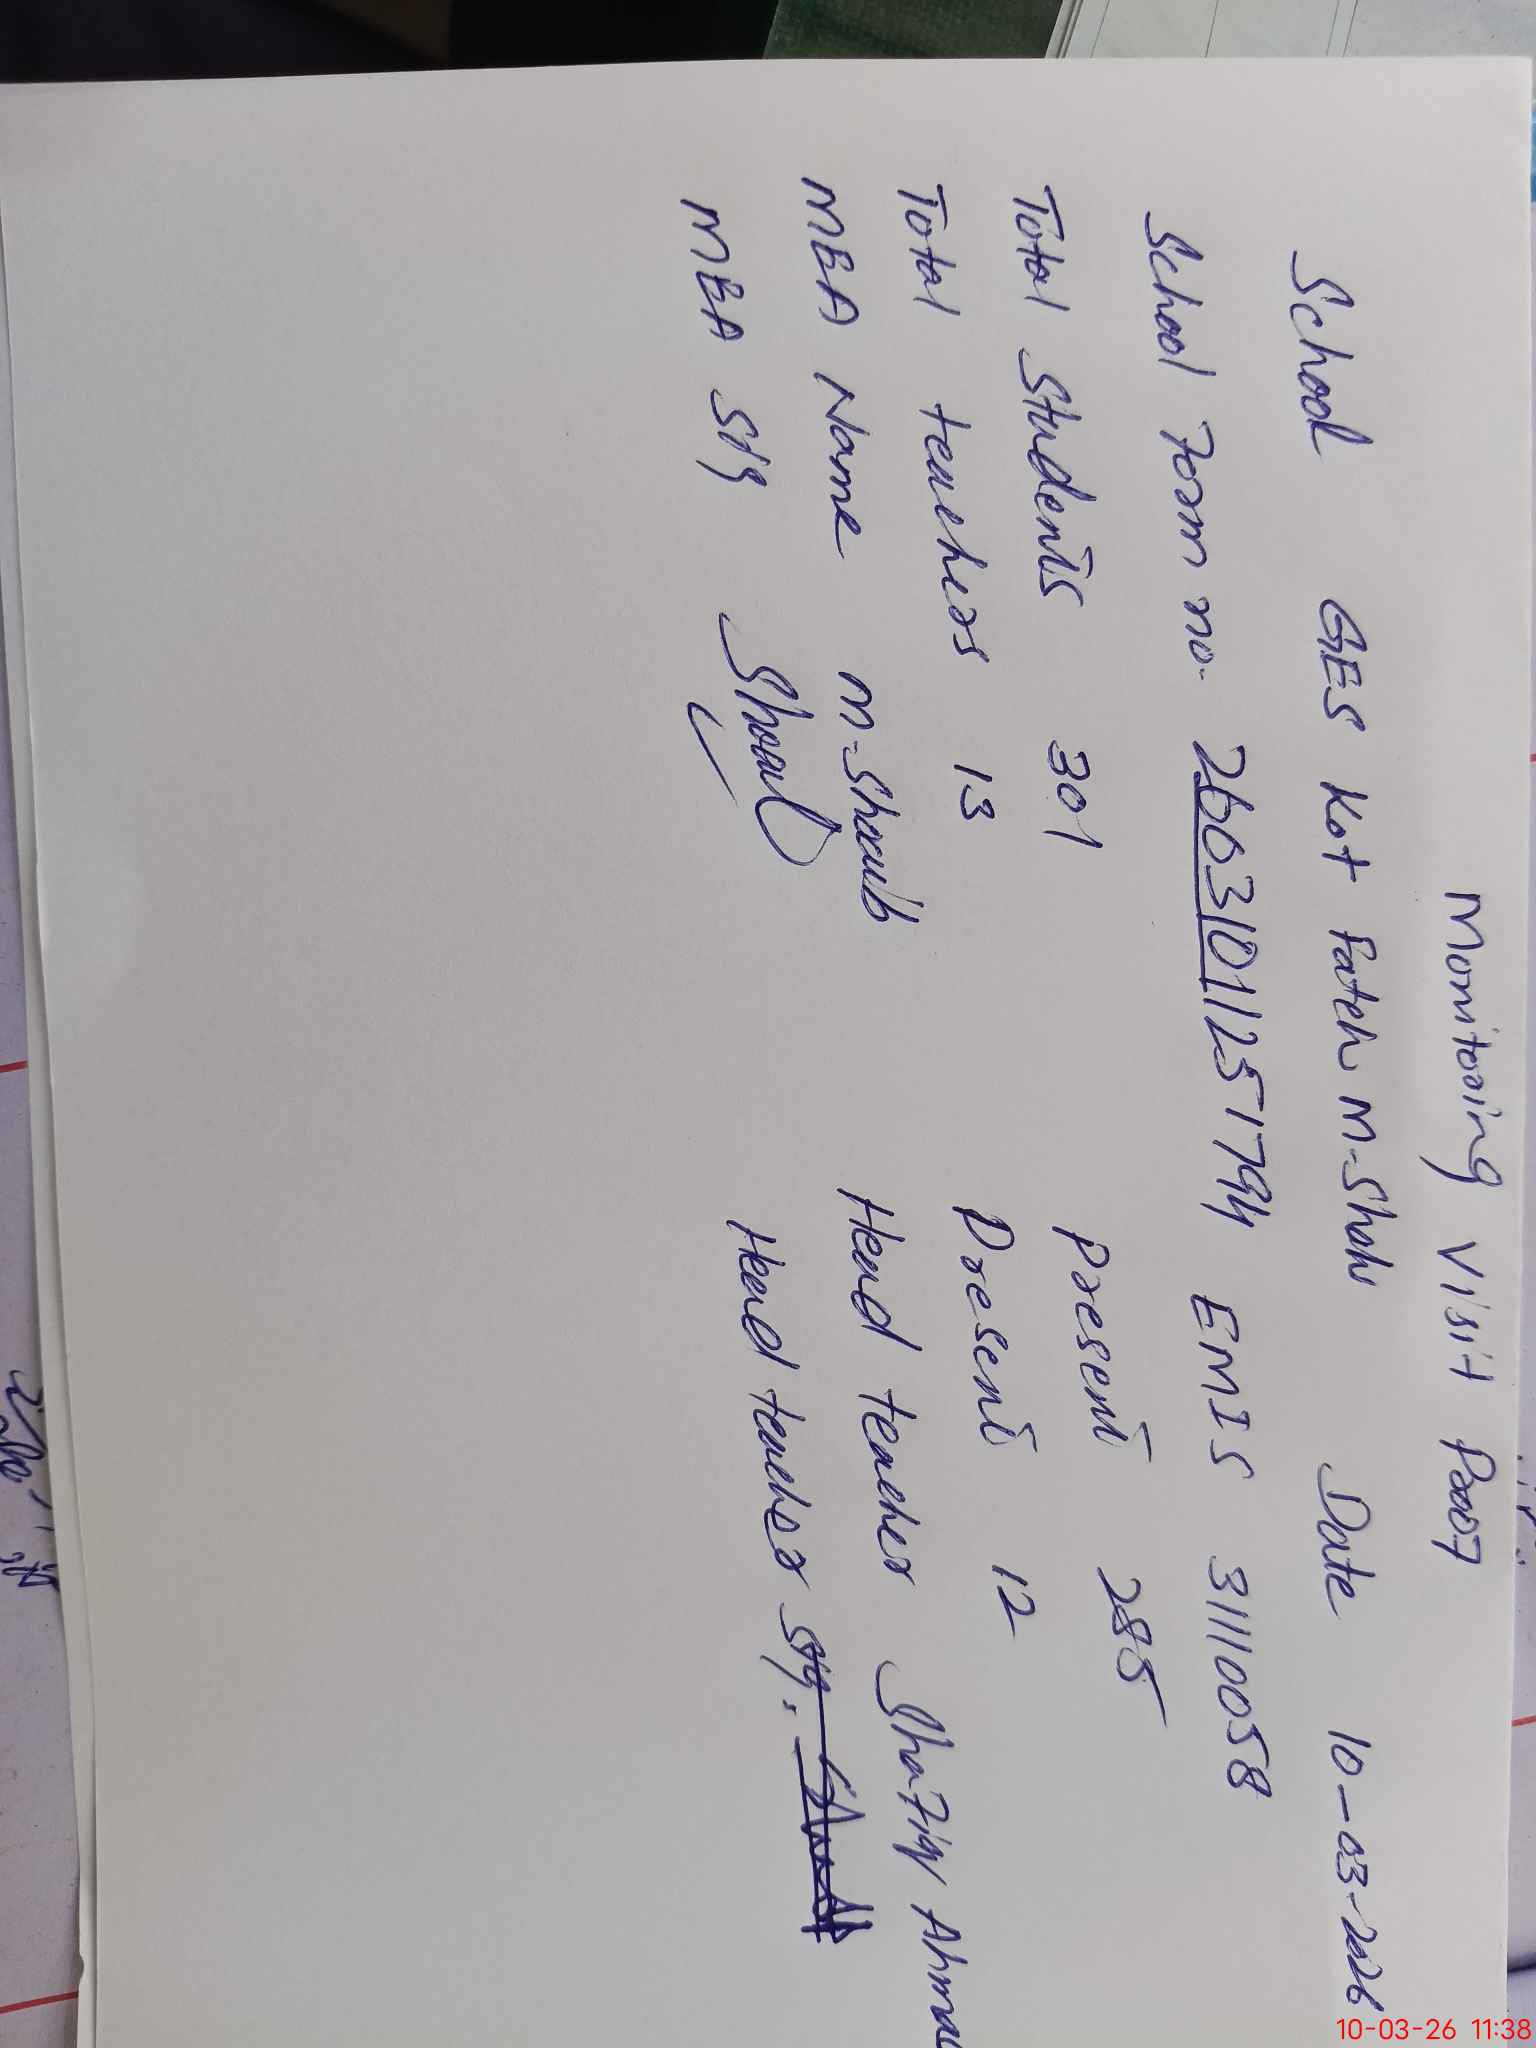 Monitoring Visit Proof
School GES Kot Fateh M-Shah Date 10-03-2026
School Form no. 2603101125794 EMIS 31110058
Total Students 301 Present 285
Total teachers 13 Present 12
MBA Name M-Shoaib Head teacher Shafiq Ahmad
MBA Sig Shoaib Head teacher Sig.
10-03-26 11:38